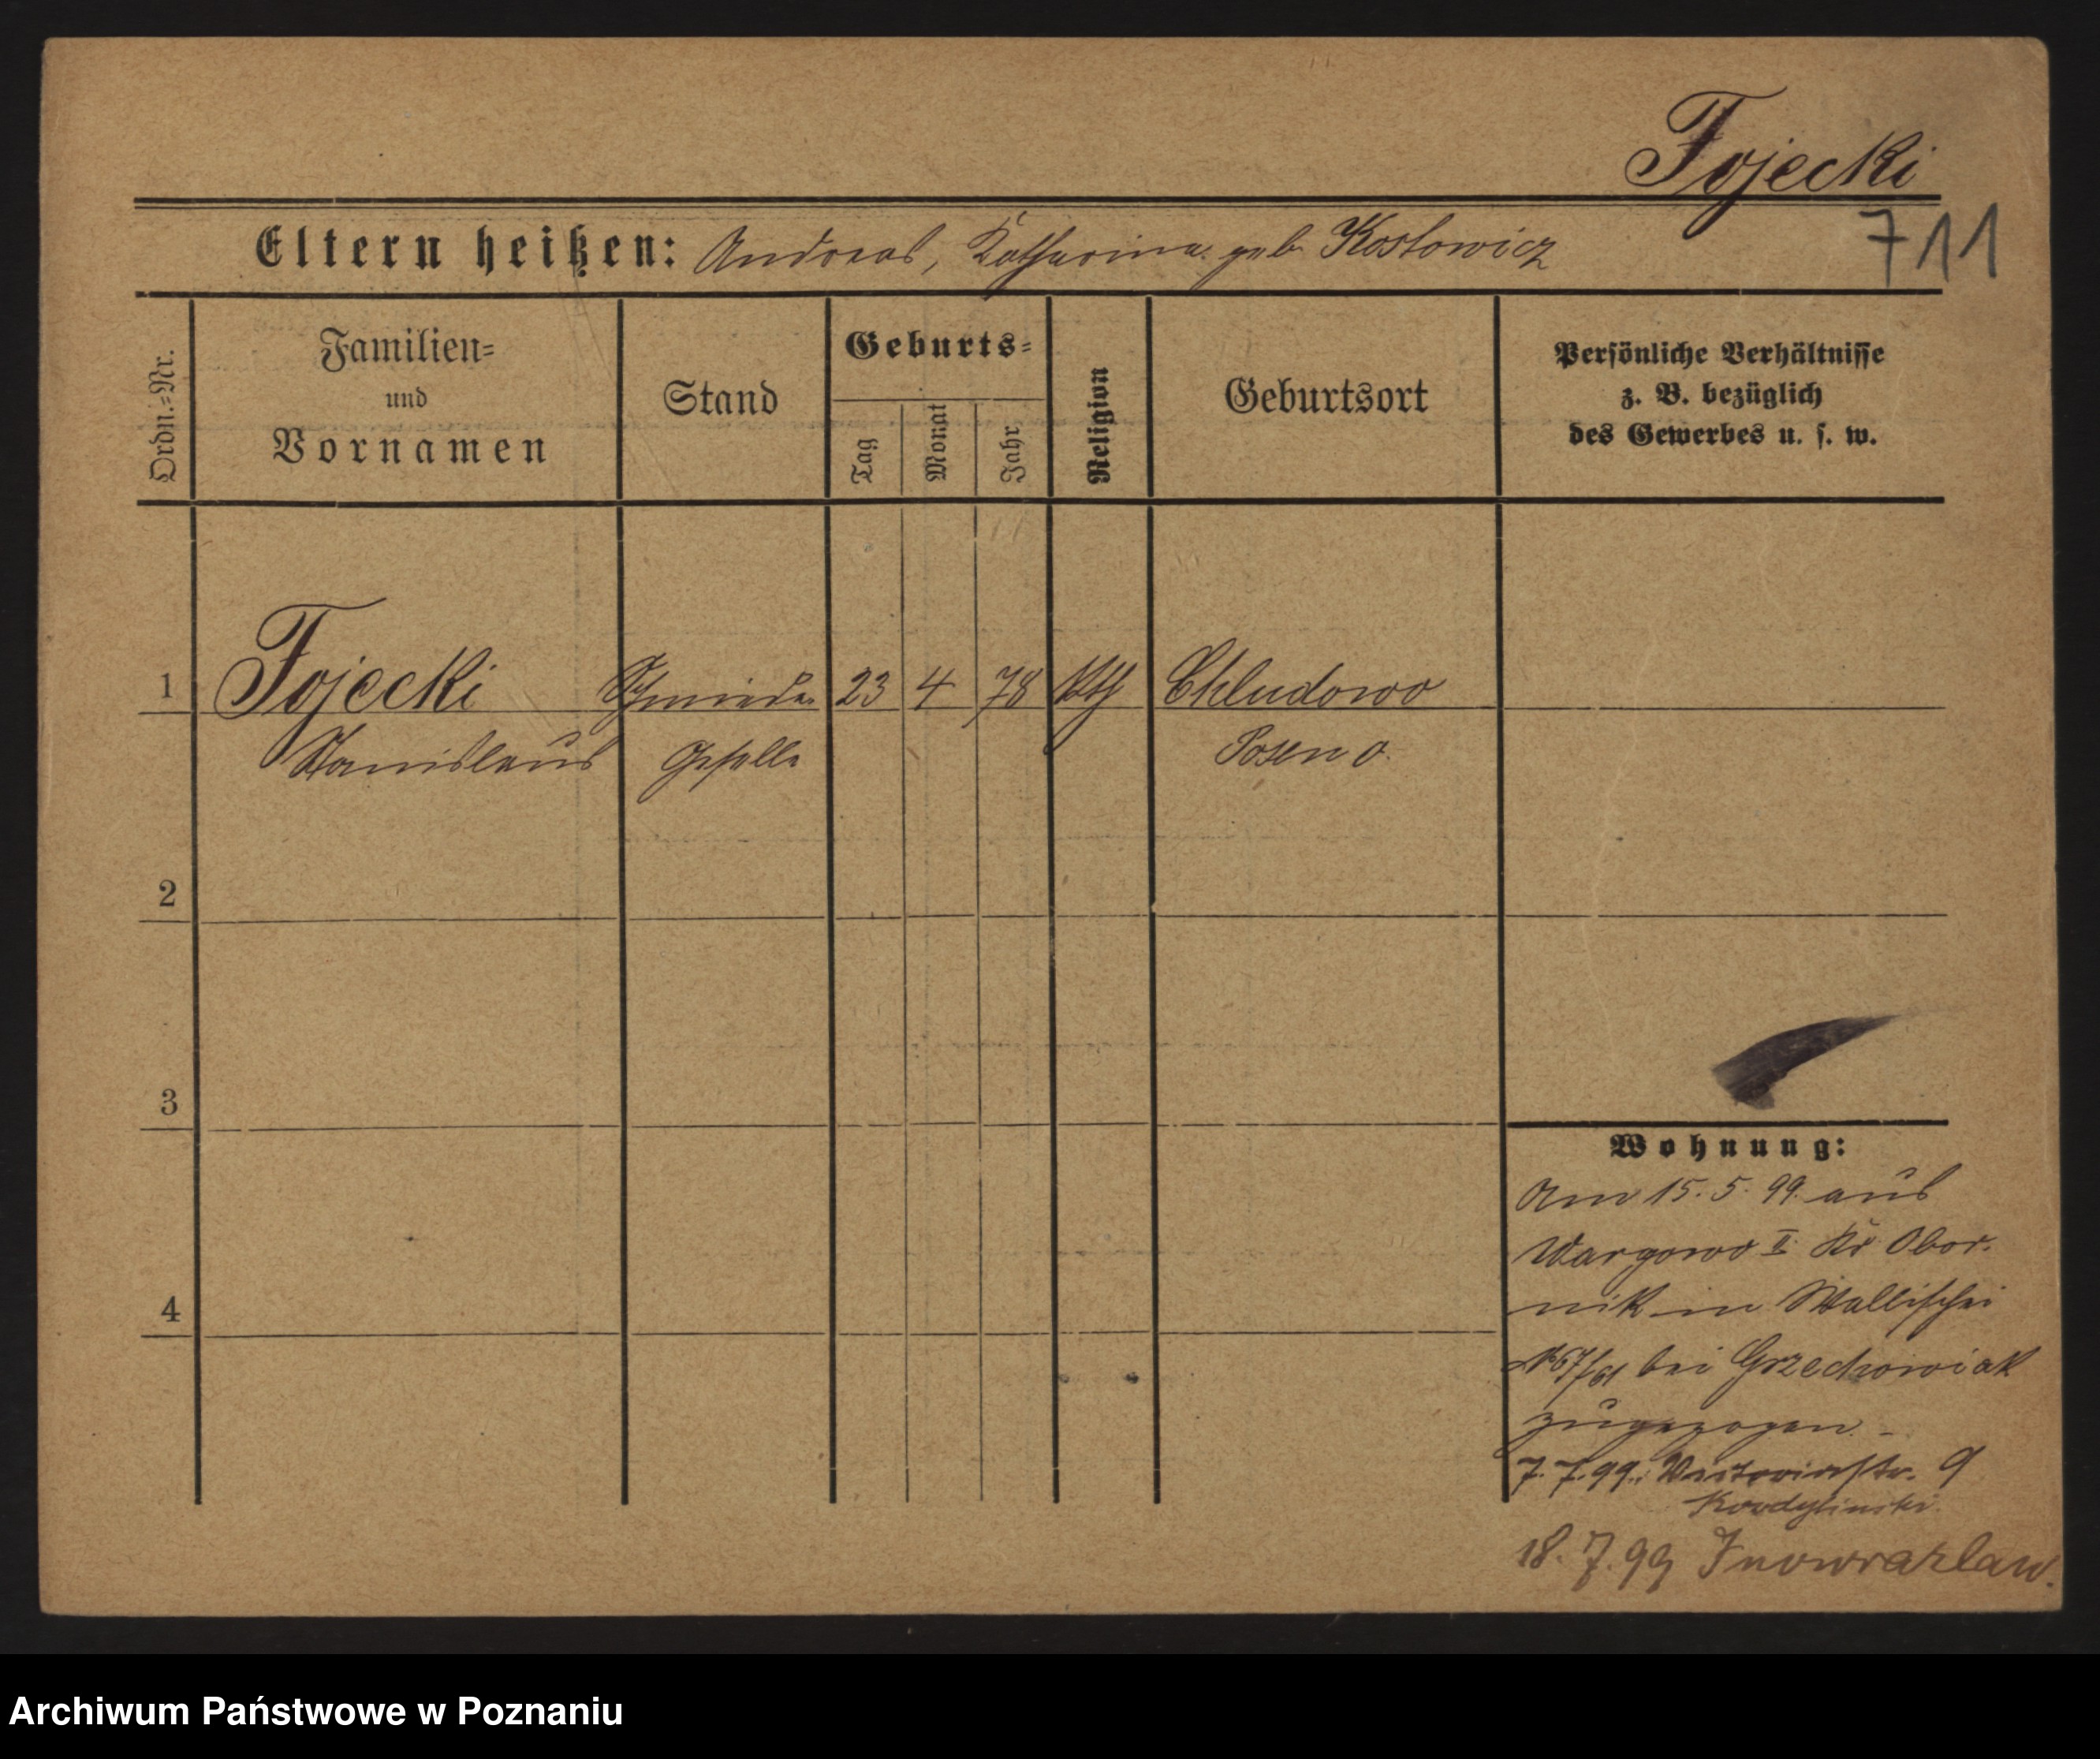 Fojecki
Eltern heißen: Andreas, Katharina geb Kostowicz
711
Ordn.=Nr.
Familien=
und
Vornamen
Stand
Geburts=
Tag
Monat
Jahr
Religion
Geburtsort
Persönliche Verhältnisse
z. B. bezüglich
des Gewerbes u. s. w.
1 Fojecki Schmiede 23 4 78 kth Chludowo
Stanislaus Geselle Posen O.
2
3
4
Wohnung:
Am 15. 5. 99. aus
Wargowo II Kr Obor.
nik in Wallischei
№ 67/61 bei Grzechowiak
zugezogen. -
7. 7. 99. 9
18. 7. 99 Inowrazlaw.
Archiwum Państwowe w Poznaniu